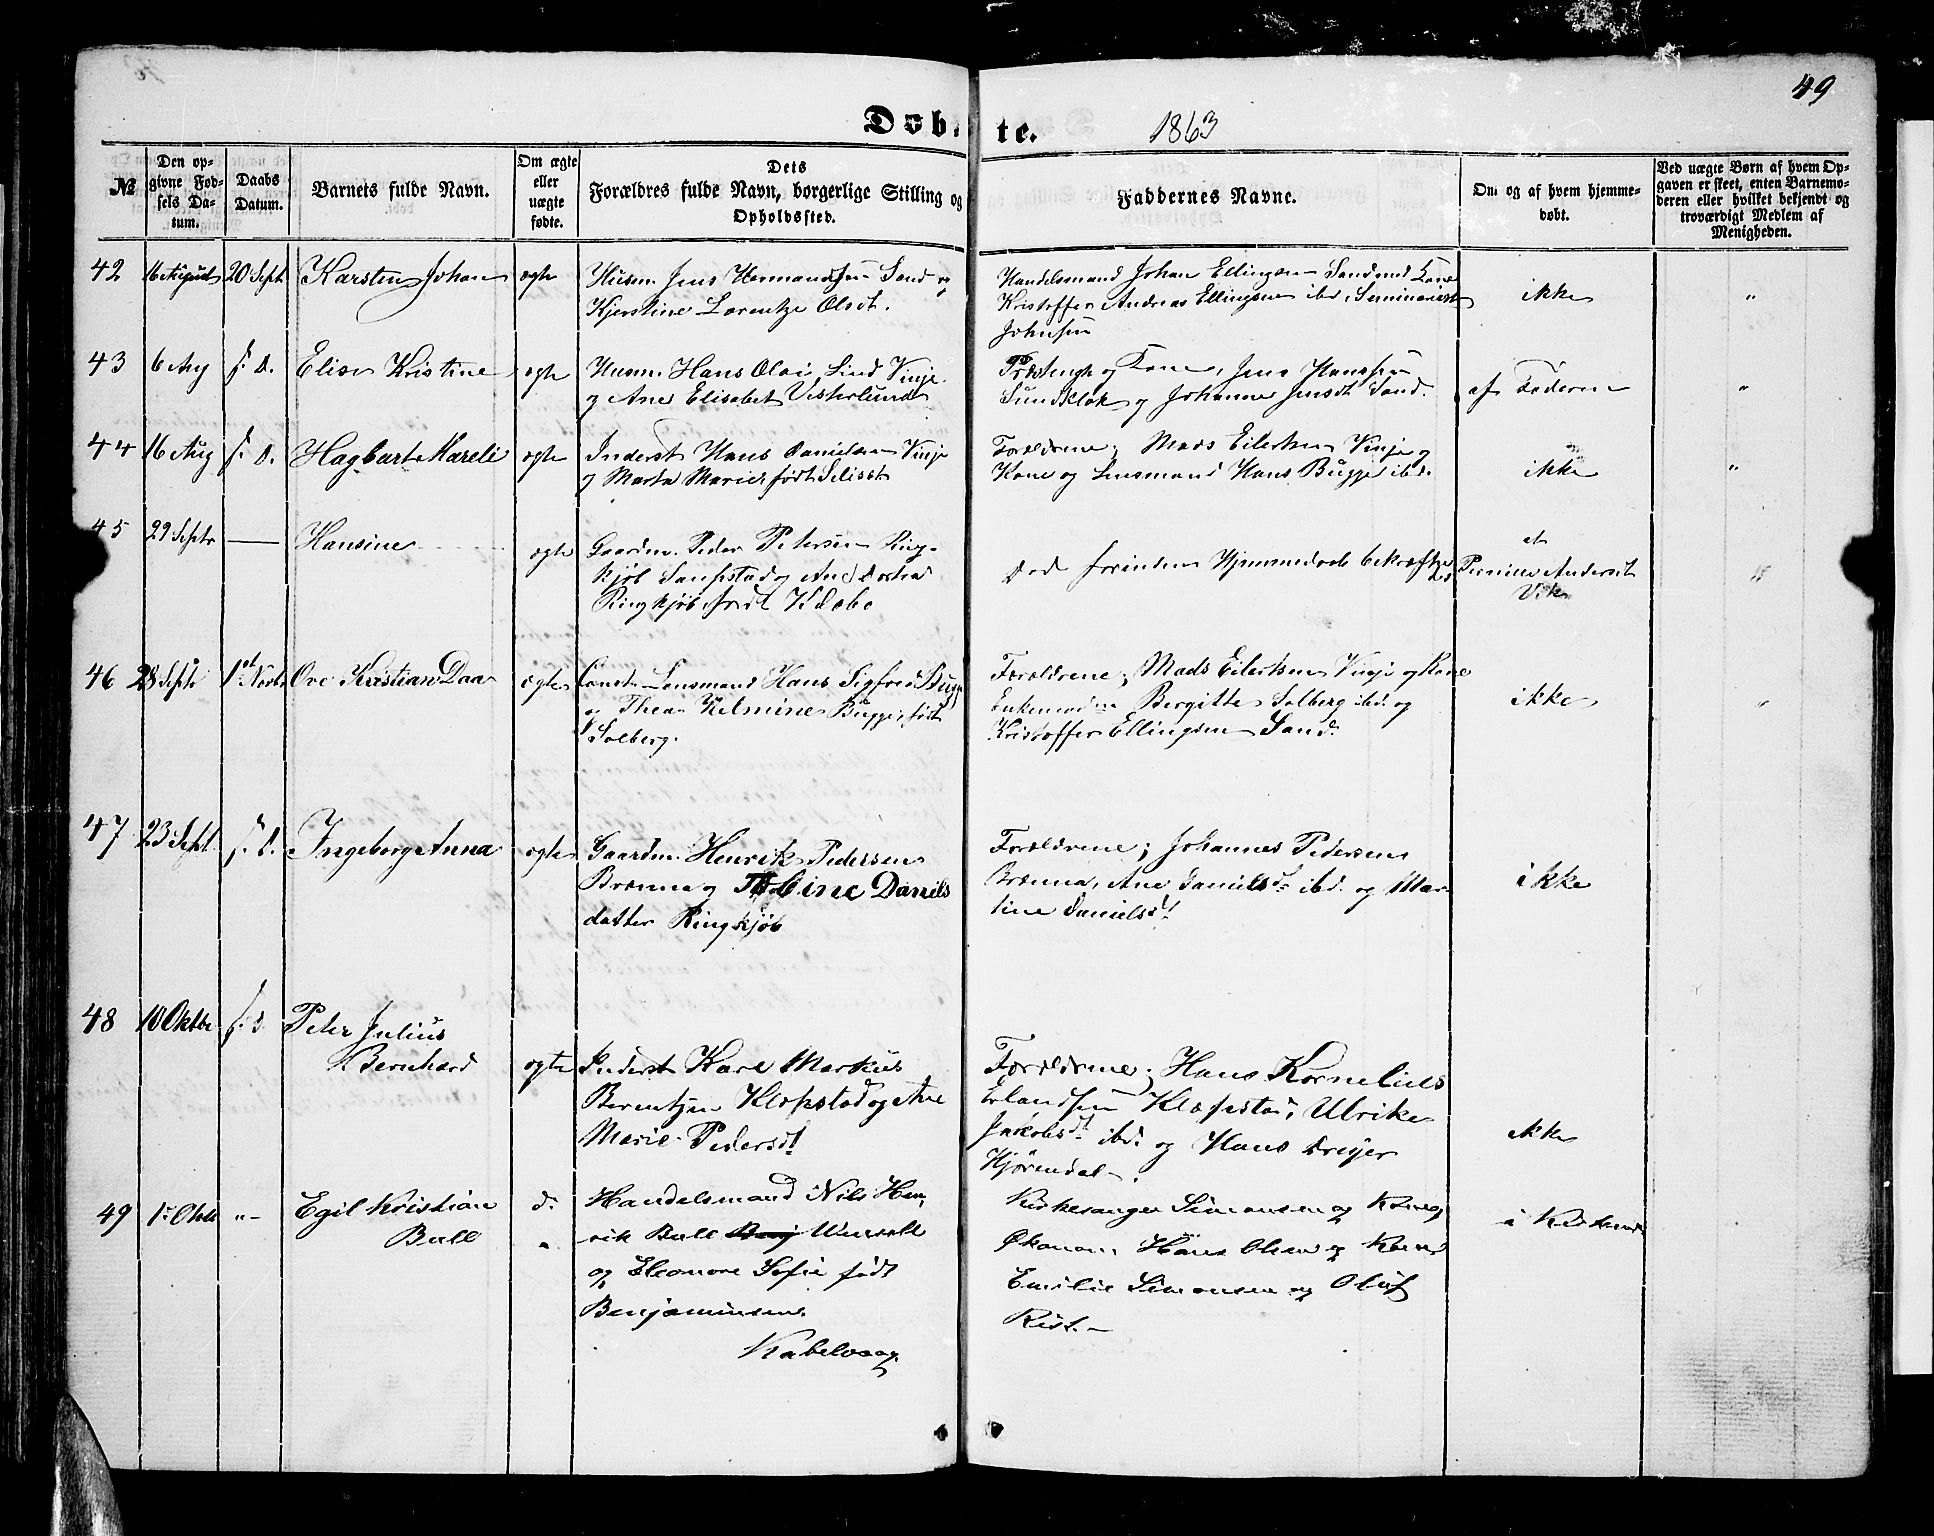 49
Døbte. 1863
№
Den opgivne Fødsels Datum.
Daabs Datum.
Barnets fulde Navn.
Om ægte eller uægte fødte.
Dets Forældres fulde Navn, borgerlige Stilling og Opholdssted.
Faddernes Navne.
Om og af hvem hjemmedøbt.
Ved uægte Børn af hvem Opgaven er skeet, enten Barnemoderen eller hvilket bekjendt og troværdigt Medlem af Menigheden.
42 16 August 20 Sept Karsten Johan ogte
Husm. Jens Hermandsen Sand og
Kjerstine Lorentze Olsdt.
Handelsmand Johan Ellingsen Sand med Kone
Kristoffer Andreas Ellingsen ibd, Seminarist
Johnsen
ikke "
43 6 Aug s. D. Elise Kristine ogte
Husm. Hans Olai Lind Vinje
og Ane Elisabet Vesterlund
og Kone, Jens Hanssen
Sundklak og Johanna Jensdt Sand.
af Faderen "
44 16 Aug s. D. Hagbart Mareli ogte
Inderst Hans Danielsen Vinje
og Marta Marie født
Forældrene; Mads Eilertsen Vinje og
Kone og Lensmand Hans Bugge ibd.
ikke "
45 29 Septr — Hansine ogte
Gaardm. Peder Petersen Ring-
kjøb og
Ringkjøb født Klæbo
Død forinden Hjemmedaab bekræftedes
af
Pernille Andersdt
Vik
"
46 28 Septr 1st Novbr Ove Kristian Daa ogte
Const. Lensmand Hans Sigfred Bugge
og Thea Vilmine Bugge, født
Solberg.
Forældrene; Mads Eilertsen Vinje og Kone
Enkemadme Bergitte Solberg ibd. og
Kristoffer Ellingsen Sand.
ikke "
47 23 Sept. s. D. Ingeborg Anna ogte
Gaardm. Henrik Pedersen
Brenna og Daniels
datter Ringkjøb
Forældrene; Johannes Pedersen
Brenna, Ane Danielsdt ibd. og Mar-
tine Danielsdt
ikke
48 10 Oktbr s. D. Peter Julius
Bernhard
ogte
Inderst Karl Markus
Berentzen Klopstad og Ane
Marie Pedersdt
Forældrene; Hans Kornelius
Erlandsen Klopstad, Ulrike
Jakobsdt ibd. og Hans Dreyer
Hjørendal.
ikke
49 1st Oktb "– Egil Kristian
Bull
d. "
Handelsmand Nils Hen-
rik Bull
og Eleonore Sofie født
Benjaminsen
Kabelvaag
Kirkesanger Simonsen og Kone,
Økonom Hans Olsen og Kone
Emilie Simonsen og Oluf
Rist.–
i Kirken